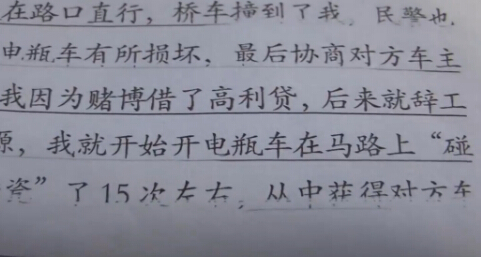 在路口直行，桥车撞到了我，民警也
电瓶车有所损坏，最后协商对方车主
我因为赌博借了高利贷，后来就辞工
源，我就开始开电瓶车在马路上“碰
瓷”了15次左右，从中获得对方车